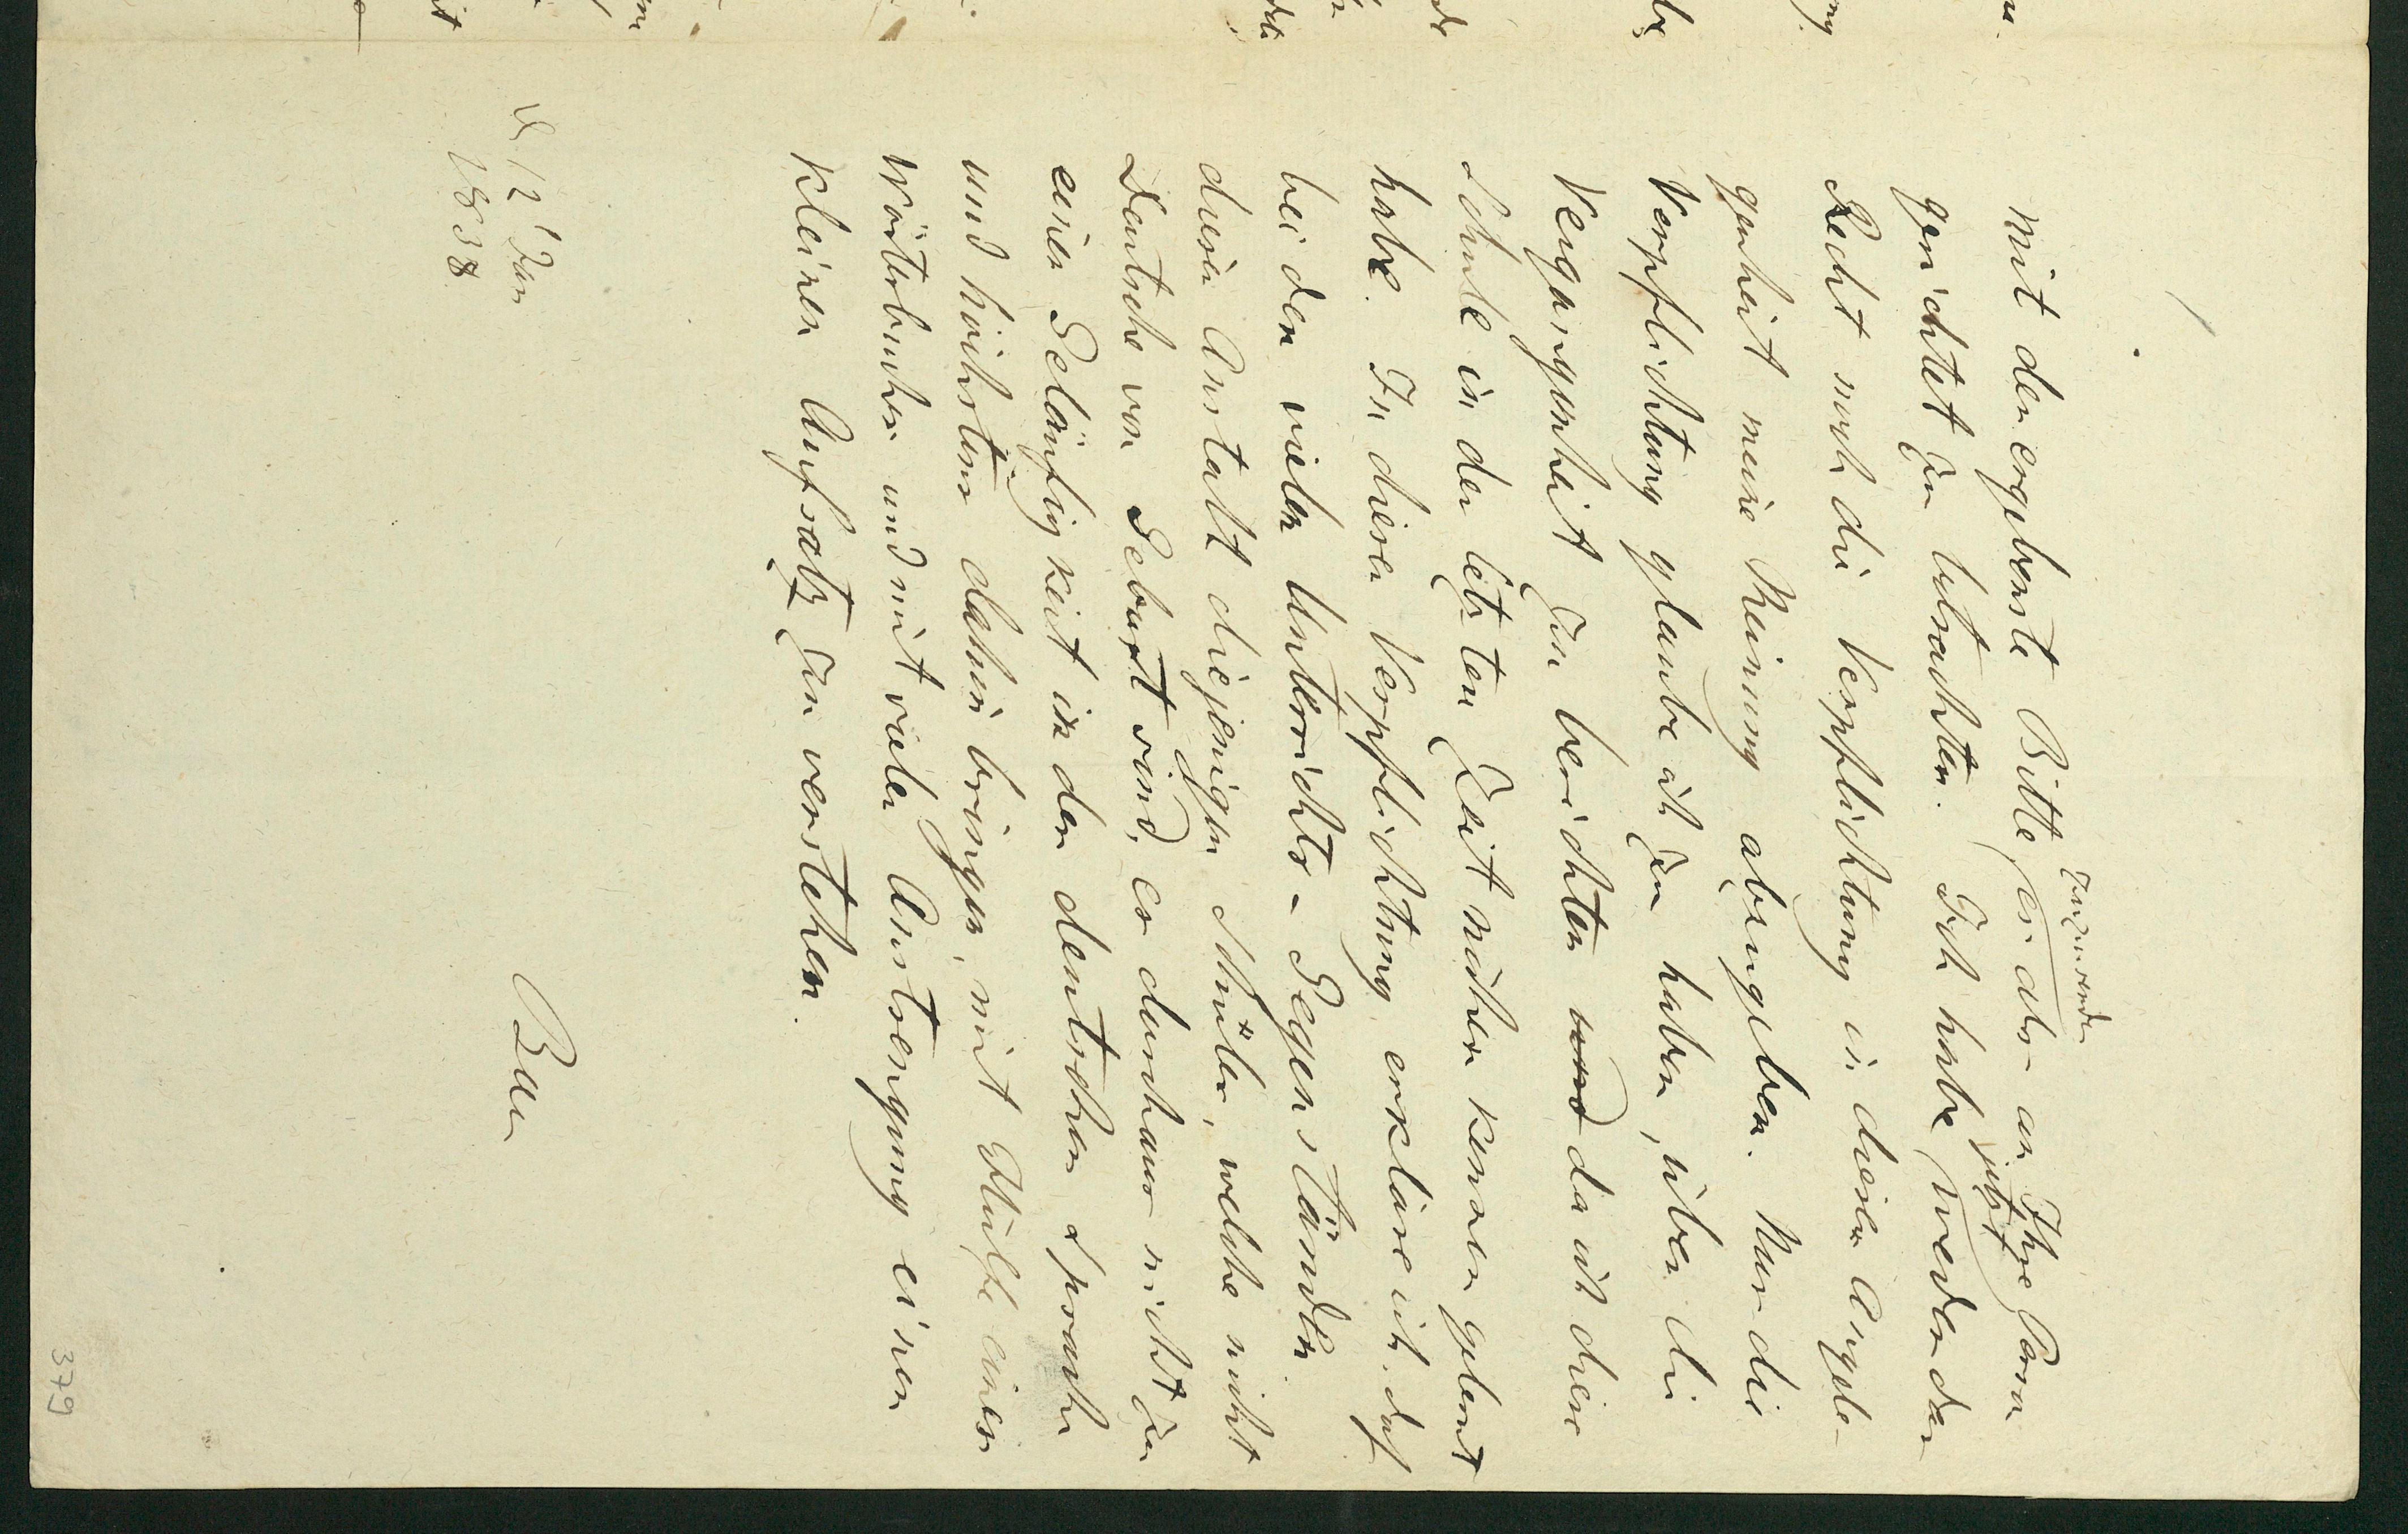 Mit der ergebenste Bitte jedes an Ihre Person
Inzwischen
gerichtet zu betrachten. Ich habe jetzt weder das
Recht noch die Verpflichtung in dieser Angele-
genheit meine Meinung abzugeben. Nur die
Verpflichtung glaube ich zu haben, über die
Vergangenheit zu berichten und da ich diese
Schule in der letzten Zeit näher kennen gelernt
habe. In dieser Verpflichtung erkläre ich, daß
bei den vielen Unterrichts-Gegenständen
dieser Anstalt diejenigen Schüler, welche nicht
Deutsche von Geburt sind, es durchaus nicht zu
einer Geläufigkeit in der deutschen Sprache
und höchstens dahin bringen, mit Hülfe eines
Wörterbuches und mit vieler Anstrengung einen
kleinen Aufsatz zu verstehen.
d 12 Jan
1838
379